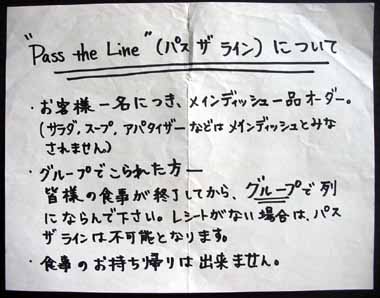 "Pass the Line" (パス ザ ライン) について
・お客様一名につき、メインディッシュ一品オーダー。
(サラダ、スープ、アパタイザーなどはメインディッシュとみな
されません)
・グループでこられた方ー
皆様の食事が終了してから、グループで列
にならんで下さい。レシートがない場合は、パス
ザラインは不可能となります。
・食事のお持ち帰りは出来ません。